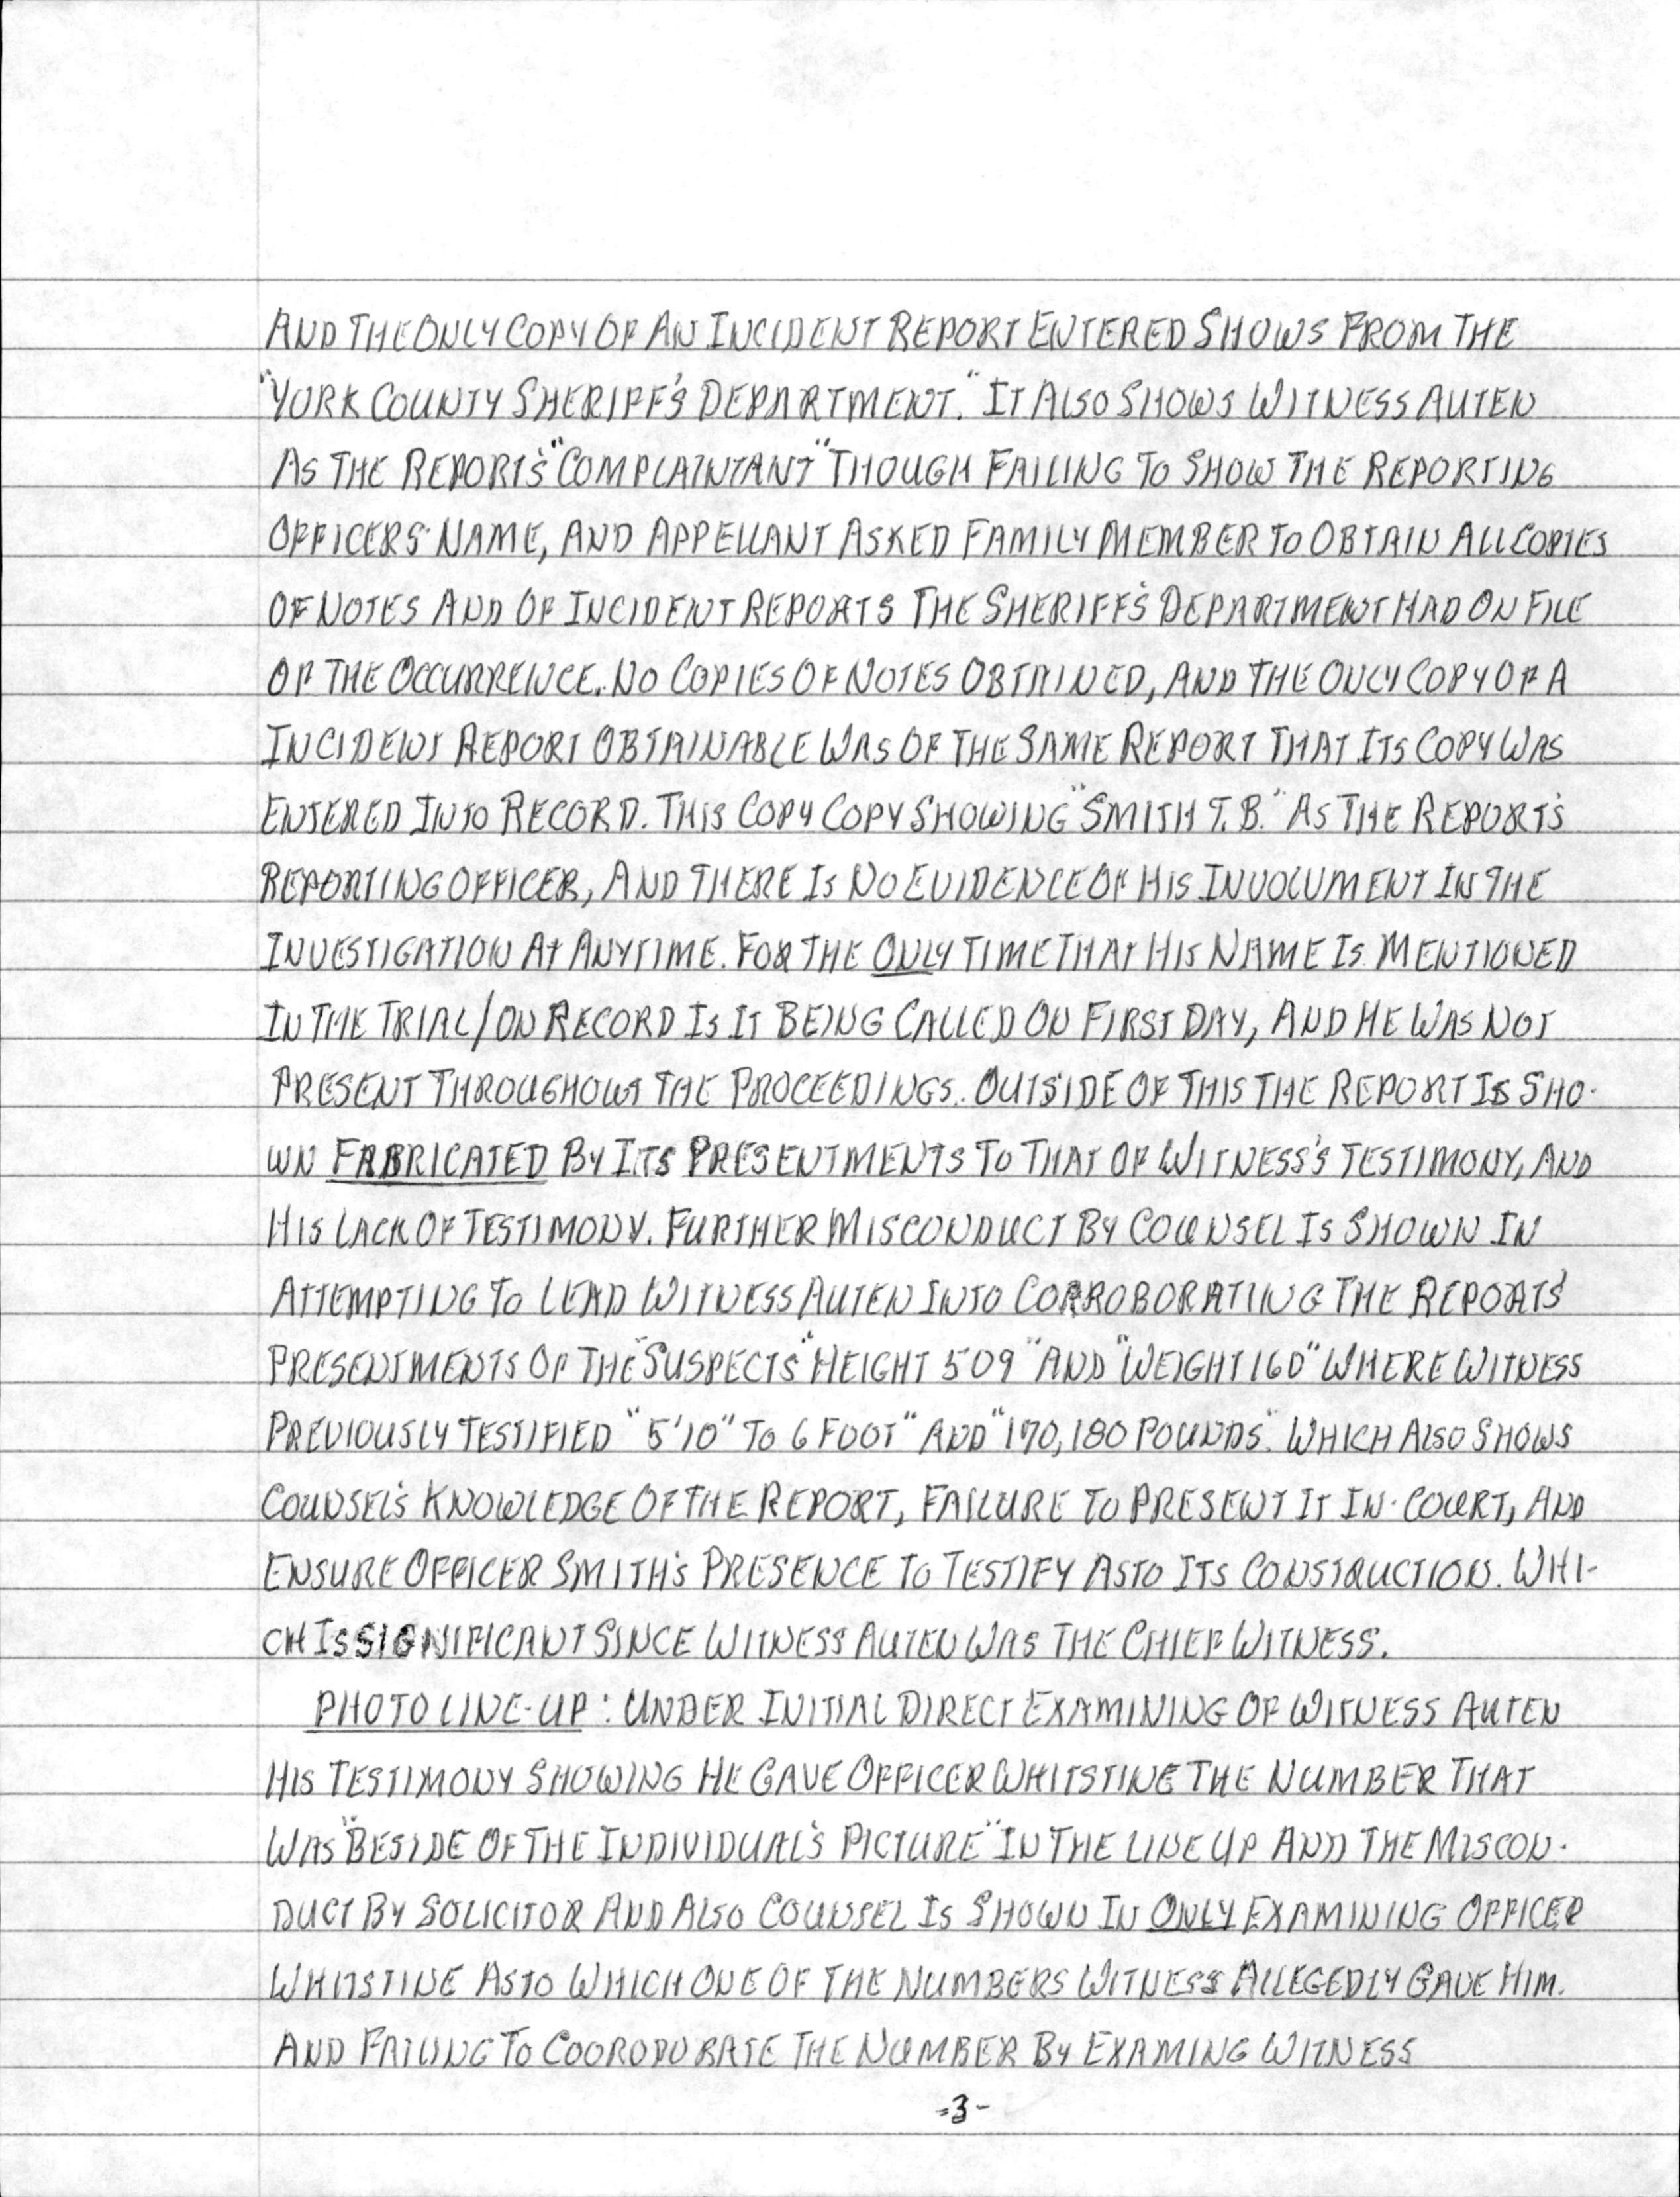 AND THE ONLY COPY OF AN INCIDENT REPORT ENTERED SHOWS FROM THE
"YORK COUNTY SHERIFF'S DEPARTMENT." IT ALSO SHOWS WITNESS AUTEN
AS THE REPORT'S "COMPLAINTANT" THOUGH FAILING TO SHOW THE REPORTING
OFFICERS' NAME, AND APPELLANT ASKED FAMILY MEMBER TO OBTAIN ALL COPIES
OF NOTES AND OF INCIDENT REPORTS THE SHERIFF'S DEPARTMENT HAD ON FILE
OF THE OCCURRENCE. NO COPIES OF NOTES OBTAINED, AND THE ONLY COPY OF A
INCIDENT REPORT OBTAINABLE WAS OF THE SAME REPORT THAT ITS COPY WAS
ENTERED INTO RECORD. THIS COPY COPY SHOWING "SMITH T.B." AS THE REPORT'S
REPORTIING OFFICER, AND THERE IS NO EVIDENCE OF HIS INVOLVMENT IN THE
INVESTIGATION AT ANYTIME. FOR THE ONLY TIME THAT HIS NAME IS MENTIONED
IN THE TRIAL/ON RECORD IS IT BEING CALLED ON FIRST DAY, AND HE WAS NOT
PRESENT THROUGHOUT THE PROCEEDINGS. OUTSIDE OF THIS THE REPORT IS SHO-
WN FABRICATED BY ITS PRESENTMENTS TO THAT OF WITNESS'S TESTIMONY, AND
HIS LACK OF TESTIMONY. FURTHER MISCONDUCT BY COUNSEL IS SHOWN IN
ATTEMPTING TO LEAD WITNESS AUTEN INTO CORROBORATING THE REPORTS'
PRESENTMENTS OF THE "SUSPECTS" "HEIGHT 509" AND "WEIGHT 160" WHERE WITNESS
PREVIOUSLY TESTIFIED "5'10" TO 6 FOOT" AND "170, 180 POUNDS". WHICH ALSO SHOWS
COUNSEL'S KNOWLEDGE OF THE REPORT, FAILURE TO PRESENT IT IN-COURT, AND
ENSURE OFFICER SMITH'S PRESENCE TO TESTIFY AS TO ITS CONSTRUCTION. WHI-
CH IS SIGNIFICANT SINCE WITNESS AUTEN WAS THE CHIEF WITNESS.
PHOTO LINE-UP: UNDER INITIAL DIRECT EXAMINING OF WITNESS AUTEN
HIS TESTIMONY SHOWING HE GAVE OFFICER WHITSTINE THE NUMBER THAT
WAS "BESIDE OF THE INDIVIDUAL'S PICTURE" IN THE LINE UP AND THE MISCON-
DUCT BY SOLICITOR AND ALSO COUNSEL IS SHOWN IN ONLY EXAMINING OFFICER
WHITSTINE AS TO WHICH ONE OF THE NUMBERS WITNESS ALLEGEDLY GAVE HIM.
AND FAILING TO COORODORATE THE NUMBER BY EXAMING WITNESS
-3-